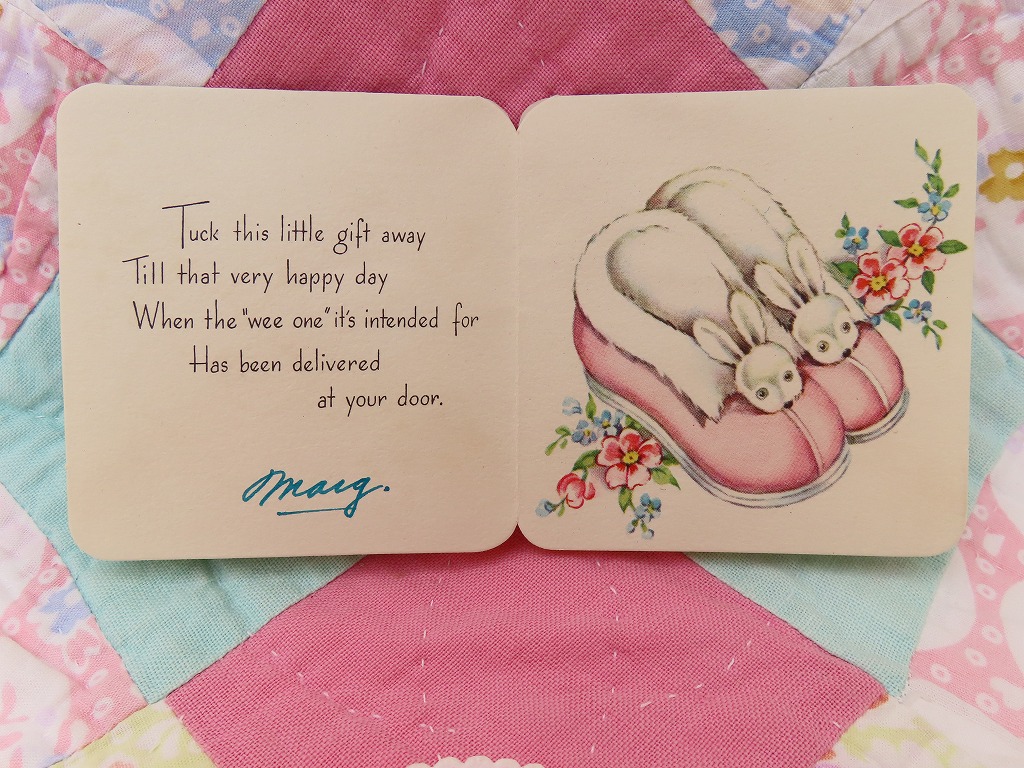 Tuck this little gift away
Till that very happy day
When the "wee one" it's intended for
Has been delivered
at your door.
Marg.